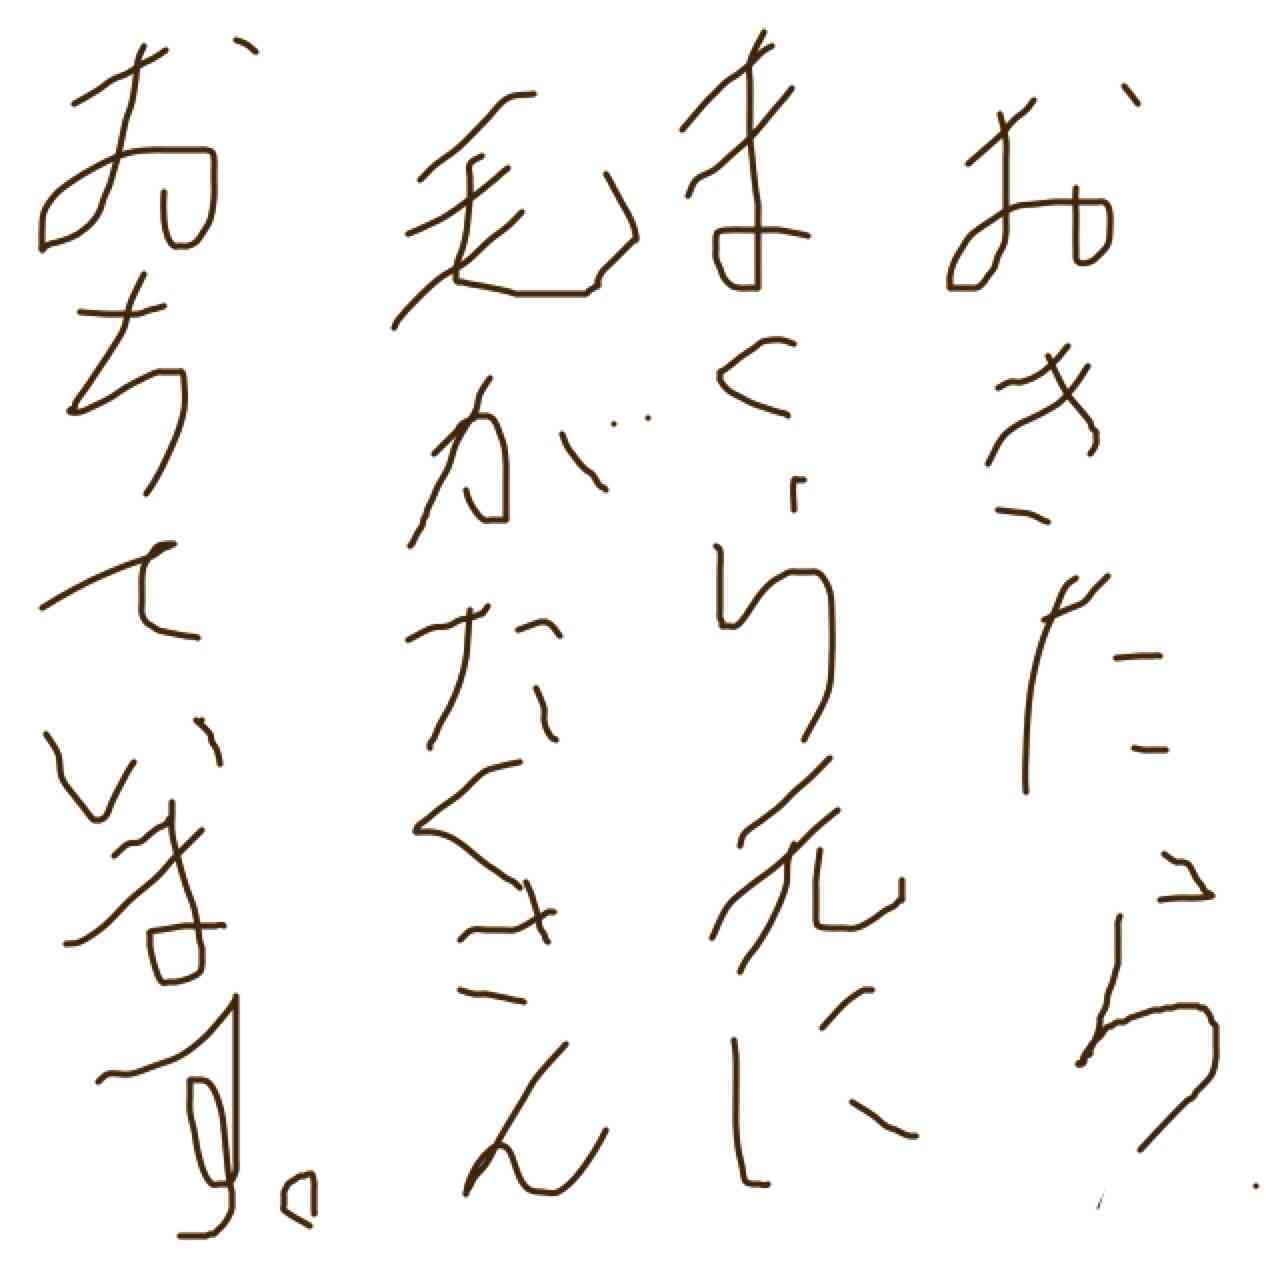 おきたら
まくら元に
毛がたくさん
おちています。